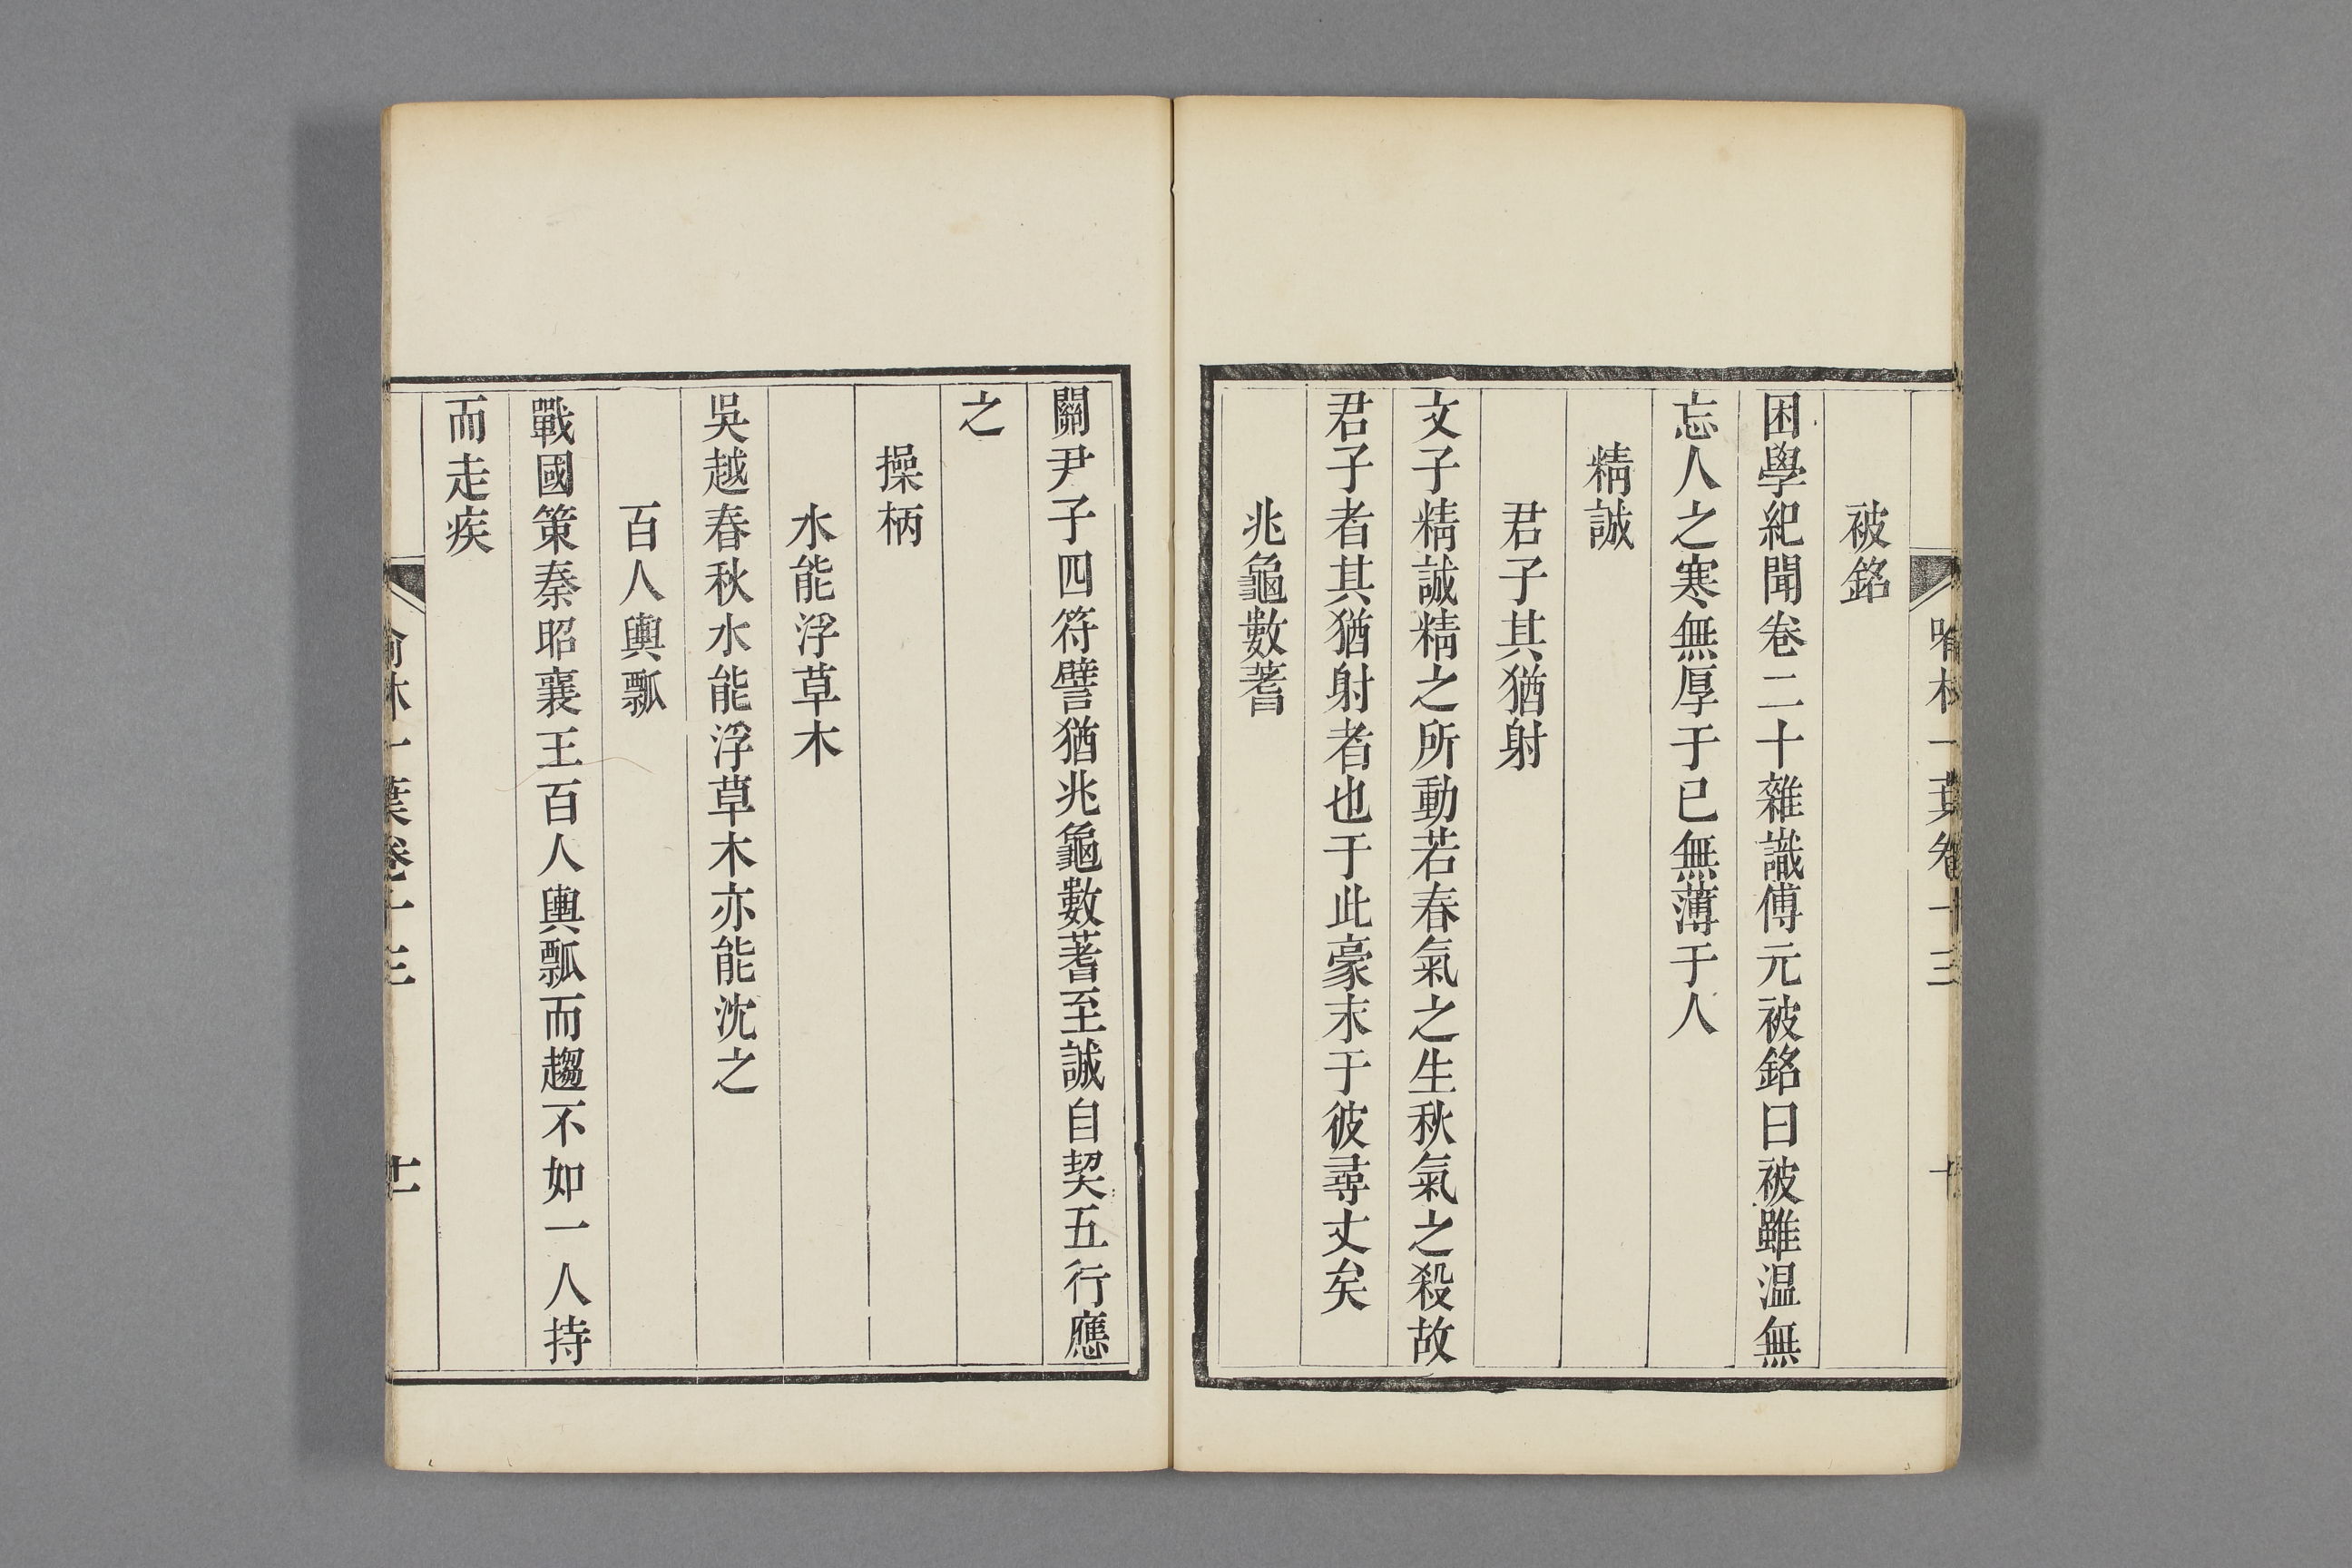 被銘
困學紀聞卷二十雜識傅元被銘曰被雖温無
忘人之寒無厚于已無薄于人
精誠
君子其猶射
文子精誠精之所動若春氣之生秋氣之殺故
君子者其猶射者也于此豪末于彼尋丈矣
兆龜數蓍
關尹子四符譬猶兆龜數蓍至誠自契五行應
之
操柄
水能浮草木
吳越春秋水能浮草木亦能沈之
百人輿瓢
戰國策秦昭襄王百人輿瓢而趨不如一人持
而走疾
喻林一葉卷十三
十一